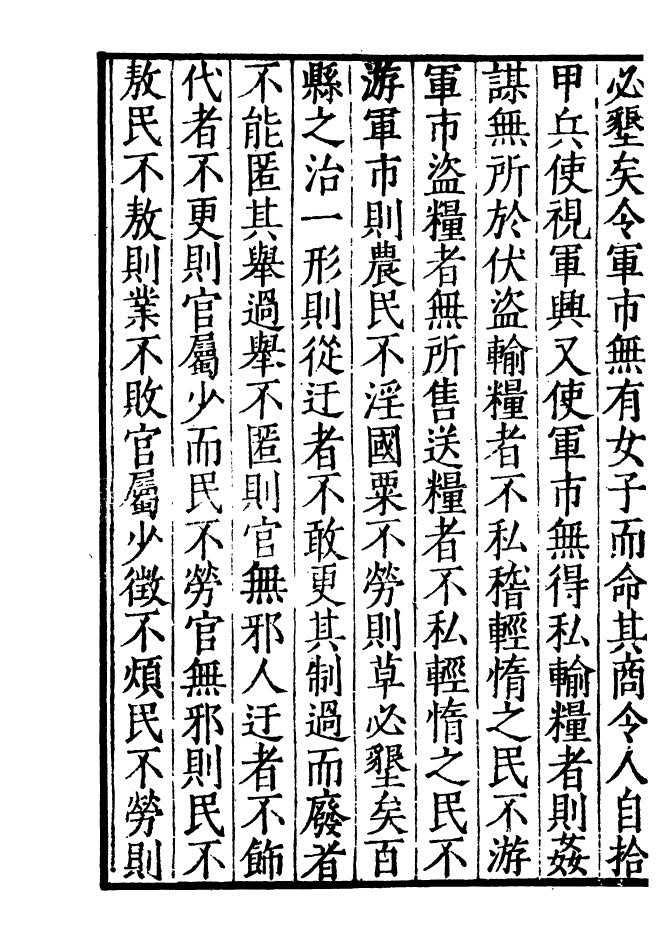 必墾矣令軍市無有女子而命其商令人自拾
甲兵使視軍興又使軍市無得私輸糧者則姦
謀無所於伏盜輸糧者不私稽輕惰之民不游
軍市盜糧者無所售送糧者不私輕惰之民不
游軍市則農民不淫國粟不勞則草必墾矣百
縣之治一形則從迂者不敢更其制過而廢者
不能匿其舉過舉不匿則官無邪人迂者不飾
代者不更則官屬少而民不勞官無邪則民不
敖民不敖則業不敗官屬少徵不煩民不勞則